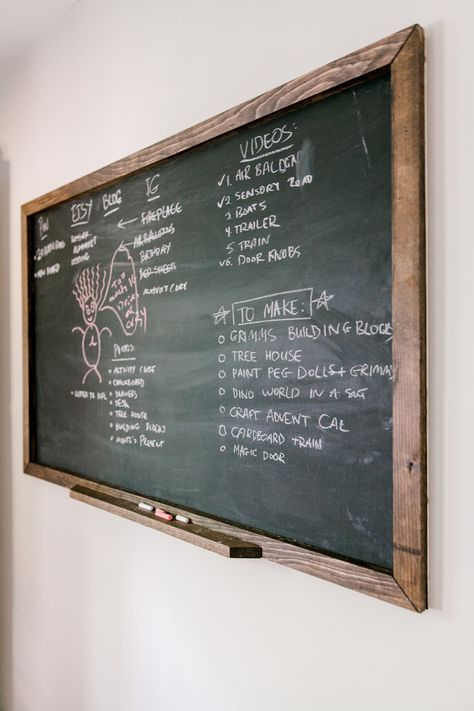 PIN
ETSY
BLOG
IG
← FIREPLACE
← AIR BALLOONS
BIRTHDAY
BED SHEETS
ACTIVITY CUBE
TOO
much
Drink
PHOTOS
• ACTIVITY CUBE
• CHALKBOARD
• DRAWERS
• DESK
• TREE HOUSE
• BUILDING BLOCKS
• PRESENT
VIDEOS:
✓1. AIR BALOON
✓2. SENSORY ROAD
3. BOATS
4. TRAILER
5. TRAIN
✓6. DOOR KNOBS
☆ TO MAKE: ☆
○ GRIMMS BUILDING BLOCKS
○ TREE HOUSE
○ PAINT PEG DOLLS + GRIMMS
○ DINO WORLD IN A
○ CRAFT ADVENT CAL
○ CARDBOARD TRAIN
○ MAGIC DOOR